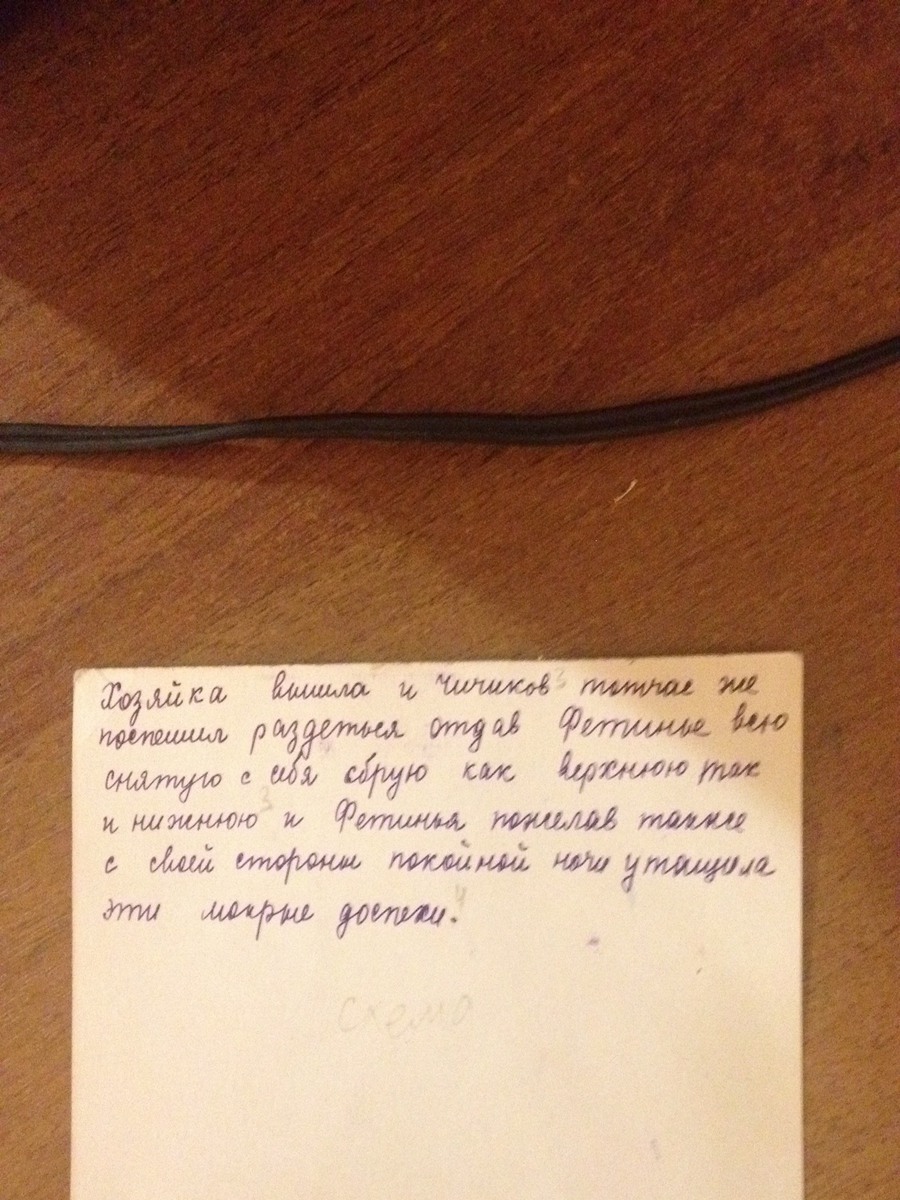 Хозяйка вышла и Чичиков тотчас же
поспешил раздеться отдав Фетинье всю
снятую с себя сбрую как верхнюю так
и нижнюю и Фетинья пожелав также
с своей стороны покойной ночи утащила
эти мокрые доспехи.
схема